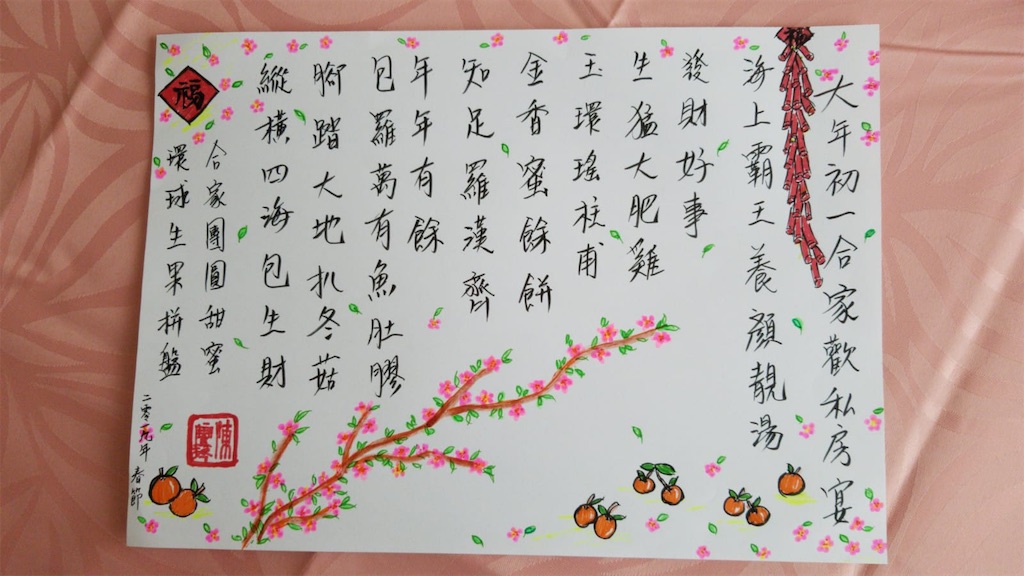 大年初一合家歡私房宴
福
海上霸王養顏靚湯
發財好事
生猛大肥雞
玉環瑤柱甫
金香蜜餘餅
知足羅漢齊
年年有餘
包羅萬有魚肚膠
腳踏大地扒冬菇
縱橫四海包生財
福
合家團圓甜蜜
環球生果拼盤
二零一九年 春節